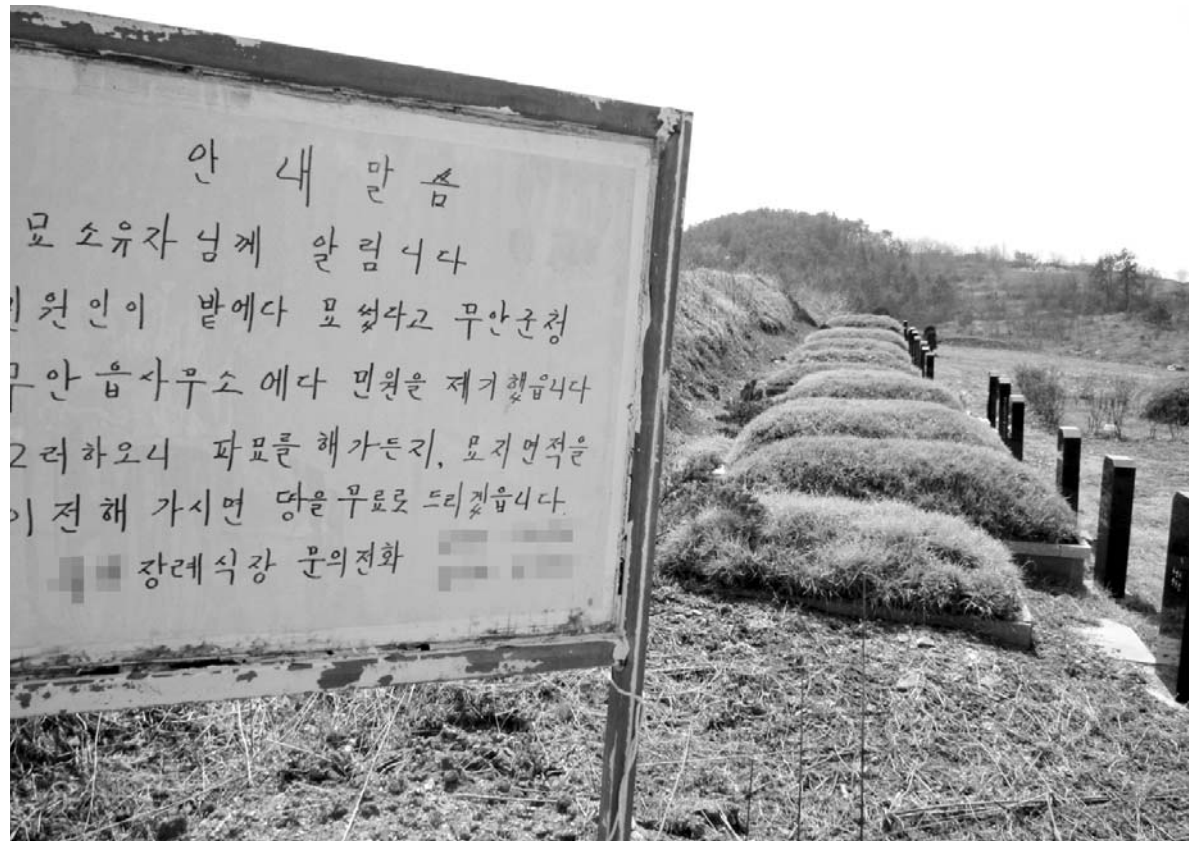 안 내 말 씀
묘 소유자 님께 알림니다
원인이 밭에다 묘 썼다고 무안군청
무안읍사무소에다 민원을 제기했읍니다
그러하오니 파묘를 해가든지, 묘지면적을
이전해 가시면 땅을 무료로 드리겠읍니다.
장례식장 문의전화